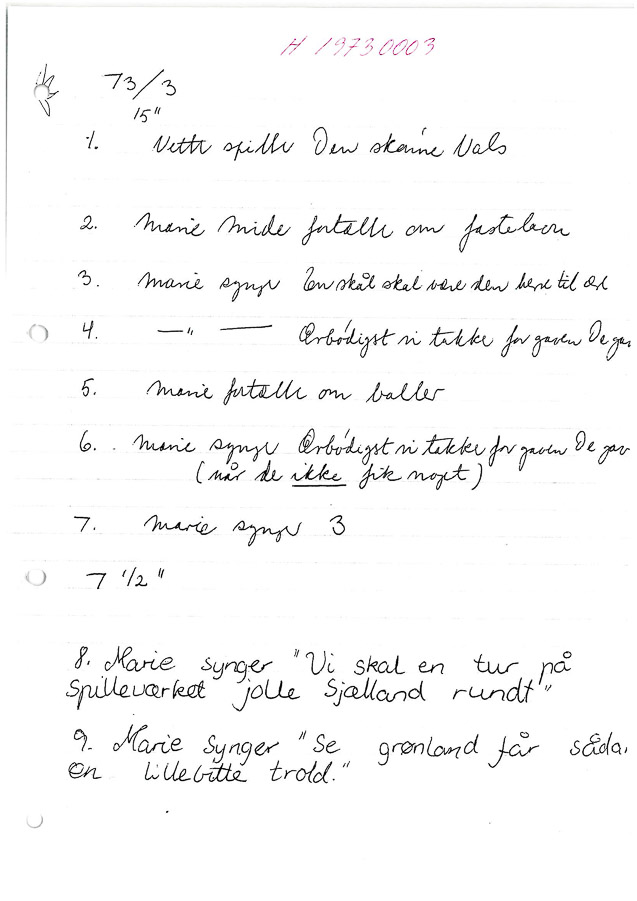 H 19730003
73/3
15"
1. Vette spille Den skønne Vals
2. Marie Mide fortælle om fastelavn
3. Marie synge En skål skal være den bene til
4. —"— Ærbødigst vi takke for gaven De gav
5. Marie fortælle om baller
6. Marie synge Ærbødigst vi takke for gaven De gav
(når de ikke fik noget)
7. Marie synge 3
7 1/2"
8. Marie synger "Vi skal en tur på
Spilleværket jolle Sjælland rundt"
9. Marie Synger "Se grønland får såda
en lillebitte trold."